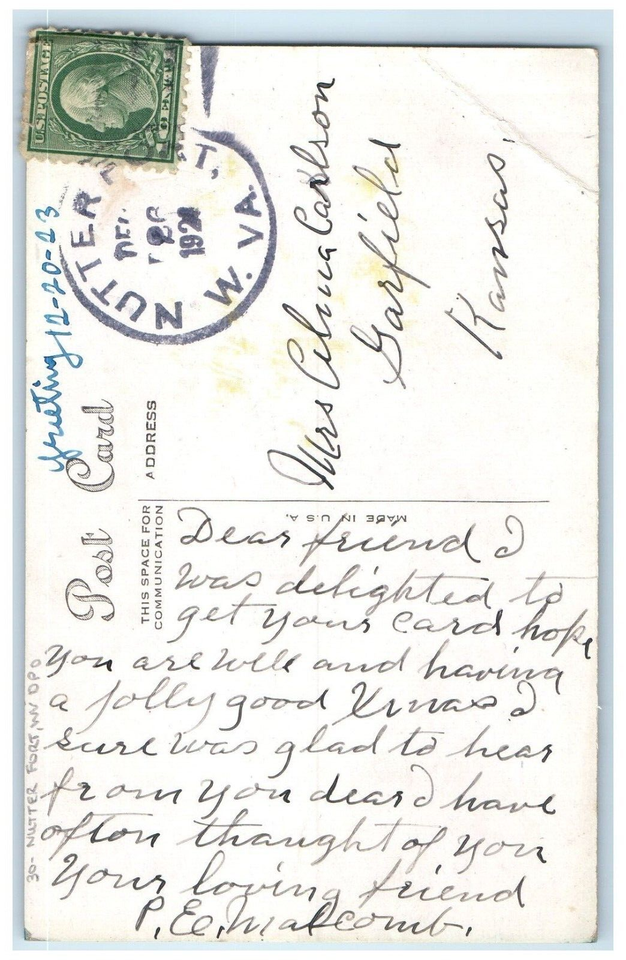 U.S. POSTAGE
NUTTER
W. VA.
DEC
192
Greeting 12-20-23
Post Card
ADDRESS
Mrs Alma Carlson
Garfield
Kansas.
THIS SPACE FOR
COMMUNICATION
MADE IN U.S.A.
Dear friend I
was delighted to
get your card hope
you are well and having
a jolly good Xmas I
sure was glad to hear
from you dear I have
ofton thaught of you
Your loving friend
P. E. Malcomb.
30- NUTTER FORT, WV DPO